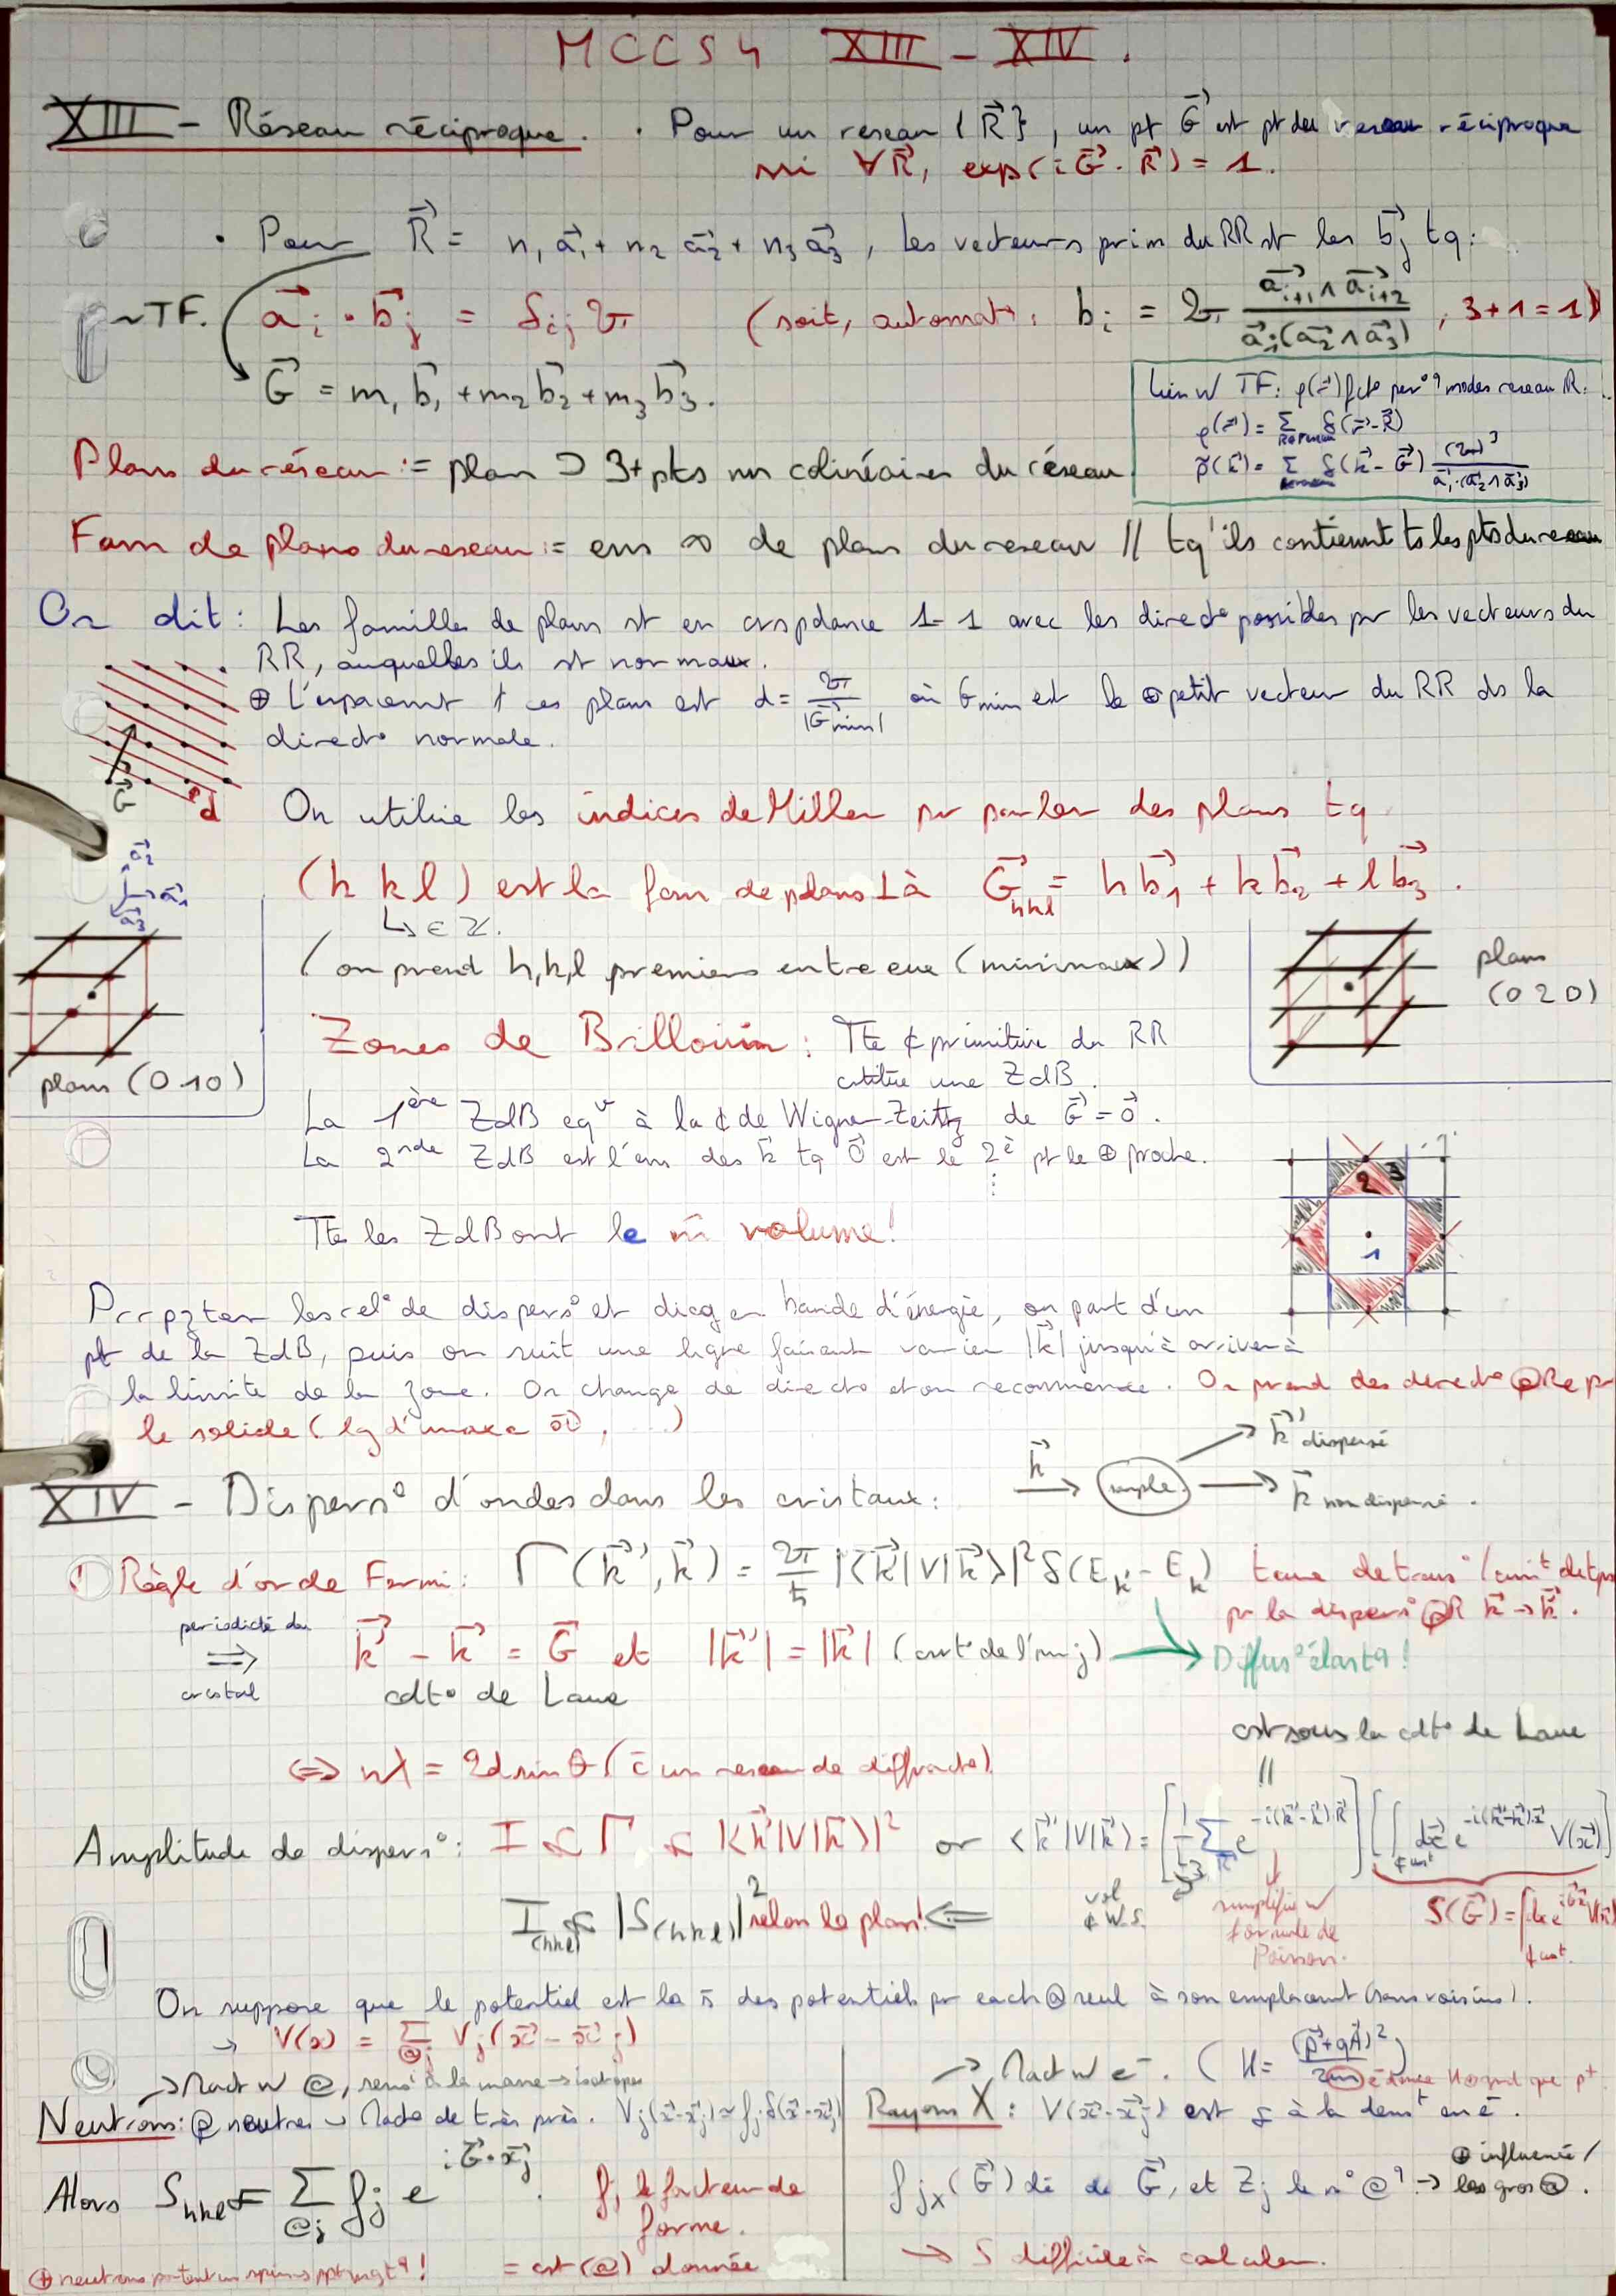 MCCS4 XIII - XIV.
XIII - Réseau réciproque. . Pour un reseau {R⃗}, un pt G⃗ est pt du reseau réciproque
ssi ∀R⃗, exp(iG⃗·R⃗) = 1.
• Pour R⃗ = n₁a⃗₁ + n₂a⃗₂ + n₃a⃗₃, les vecteurs prim du RR st les b⃗j tq:
~TF. a⃗i · b⃗j = δij 2π (soit, automat: bi = 2π (a⃗i+1 ∧ a⃗i+2)/(a⃗1·(a⃗2 ∧ a⃗3)), 3+1=1)
G⃗ = m₁b⃗₁ + m₂b⃗₂ + m₃b⃗₃.
Lien w TF: ρ(r⃗) fct° per° modes reseau R:
ρ(r⃗) = Σ δ(r⃗-R⃗)
ρ̃(k⃗) = Σ δ(k⃗-G⃗) (2π)³/(a⃗1·(a⃗2∧a⃗3))
Plans du réseau := plan ⊃ 3+ pts nn colinéaires du réseau
Fam de plans du reseau := ens ∞ de plans du reseau // tq'ils contiennt ts les pts du reseau
On dit: Les familles de plans st en crspdance 1-1 avec les direct° possibles pr les vecteurs du
RR, auquelles ils st normaux.
⊕ L'espacemt ces plans est d = 2π/|G⃗min| où Gmin est le ⊕ petit vecteur du RR ds la
direct° normale.
G⃗ d
On utilise les indices de Miller pr parler des plans tq
(h k l) est la fam de plans ⊥ à G⃗hkl = hb⃗₁ + kb⃗₂ + lb⃗₃.
↳ ∈ ℤ.
(on prend h,k,l premiers entre eux (minimaux))
a⃗2 a⃗1 a⃗3
plans (010)
plans
(020)
Zones de Brillouin: Tte ¢ primitive du RR
cstitue une ZdB.
La 1ère ZdB eqv à la ¢ de Wigner-Zeitz de G⃗ = 0⃗.
La 2nde ZdB est l'ens des k⃗ tq 0⃗ est le 2è pt le ⊕ proche.
⋮
Ttes les ZdB ont le m̄ volume!
2 3
1
Pr rpzter les rel° de dispers° et diag en bande d'énergie, on part d'un
pt de la ZdB, puis on suit une ligne faisant varier |k⃗| jusqu'à arriver à
la limite de la zone. On change de direct° et on recommence. On prend des direct° @Re pr
le solide
XIV - Dispers° d'ondes dans les cristaux:
k⃗ sample k⃗' dispersé
k⃗ non dispersé.
① Règle d'or de Fermi: Γ(k⃗',k⃗) = 2π/ħ |⟨k⃗'|V|k⃗⟩|² δ(Ek' - Ek) taux de trans°/unit de tps
pr la dispers° @R k⃗→k⃗'.
periodicté du
⇒
cristal
k⃗' - k⃗ = G⃗ et |k⃗'| = |k⃗| (csrt° de l'énrj) → Diffus° élastq!
cdt° de Laue
⇔ nλ = 2d sinθ (c̄ un reseau de diffract°)
cst sous la cdt° de Laue
Amplitude de dispers°: I ∝ Γ ∝ |⟨k⃗'|V|k⃗⟩|² or ⟨k⃗'|V|k⃗⟩ = [1/L³ Σ e^-i(k⃗'-k⃗)·R⃗] [∫ dx⃗ e^-i(k⃗'-k⃗)·x⃗ V(x⃗)]
I(hkl) ∝ |S(hkl)|² selon le plan! ⇐
vol
¢ W.S.
simplifié w
formule de
Poisson.
S(G⃗) = ∫dx e^iG⃗x⃗ V(x⃗)
On suppose que le potentiel est la s̄ des potentiels pr each @ seul à son emplacemt (sans voisins).
→ V(x) = Σ@j Vj(x⃗ - x⃗j)
→ Nact w @, sens à la masse → isotopes
Neutrons: @ neutres de très près. Vj(x⃗-x⃗j) ≈ fj δ(x⃗-x⃗j)
Alors Shkl ∝ Σ@j fj e^iG⃗·x⃗j. fj le facteur de
forme.
= cst (@) donnée
⊕ neutrons portent un spin → ppt magtq!
→ Nact w e⁻. (H = (p⃗+qA⃗)²/2m
Rayons X: V(x⃗-x⃗j) est ∝ à la denst en e⁻.
fjx(G⃗) de G⃗, et Zj le n° @q → ⊕ influencé/
les gros @.
→ S difficile à calculer.